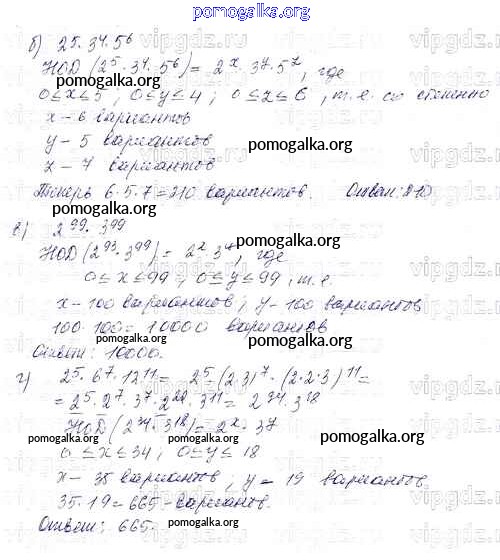 pomogalka.org
б) 2⁵·3⁴·5⁶
НОД (2⁵·3⁴·5⁶) = 2ˣ·3ʸ·5ᶻ, где
pomogalka.org
0≤x≤5; 0≤y≤4; 0≤z≤6, т.е. со степенью
x – 6 вариантов
y – 5 вариантов
z – 7 вариантов
Теперь 6·5·7=210 вариантов. Ответ: 210
pomogalka.org
в) 2⁹⁹·3⁹⁹
НОД (2⁹³·3⁹⁹) = 2ˣ3ʸ, где
pomogalka.org
0≤x≤99; 0≤y≤99, т.е.
x – 100 вариантов; y – 100 вариантов
100·100 = 10000 вариантов
pomogalka.org
Ответ: 10000.
г) 2⁵·6⁷·12¹¹ = 2⁵(2·3)⁷·(2·2·3)¹¹=
=2⁵·2⁷·3⁷·2²²·3¹¹= 2³⁴·3¹⁸
НОД (2³⁴·3¹⁸) = 2ˣ·3ʸ
pomogalka.org pomogalka.org pomogalka.org
0≤x≤34; 0≤y≤18
x – 35 вариантов, y – 19 вариантов
35·19=665 – вариантов.
Ответ: 665.
pomogalka.org
vipgdz.ru